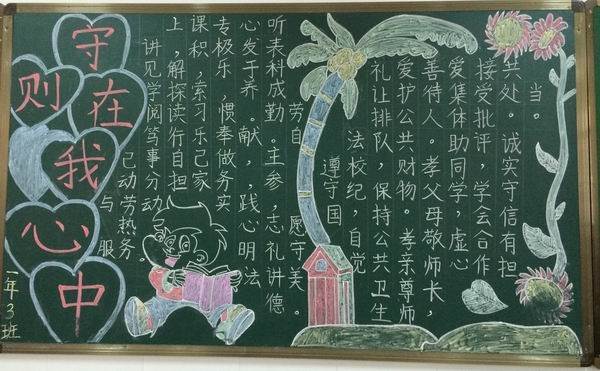 守则在我心中
上课专心听
讲，积极发表
见解，乐于科
学探索，养成
阅读习惯。勤劳
笃行乐奉献。自
己事自己做，主
动分担家务，参
与劳动实践，
热心志愿
服务。明礼守
法讲美
德。
遵守国
法校纪，自觉
礼让排队，保持公共卫生
爱护公共财物。孝亲尊师
善待人。孝父母敬师长，
爱集体助同学，虚心
接受批评，学会合作
共处。诚实守信有担
当。
一年3班